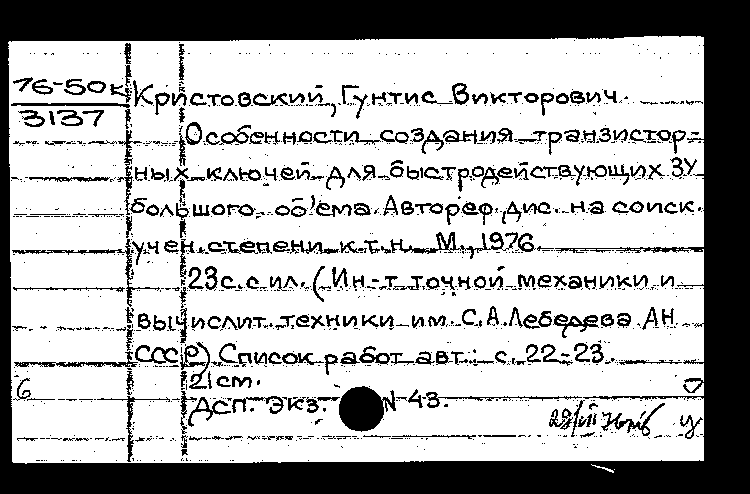 76-50к
3137
Кристовский, Гунтис Викторович.
Особенности создания транзистор-
ных ключей для быстродействующих ЗУ
большого об'ема. Автореф. дис. на соиск.
учен. степени к.т.н. М., 1976.
23с. с ил. (Ин-т точной механики и
вычислит. техники им. С.А.Лебедева АН
СССР). Список работ авт.: с. 22-23.
21 см.
б
ДСП. Экз. N 43.